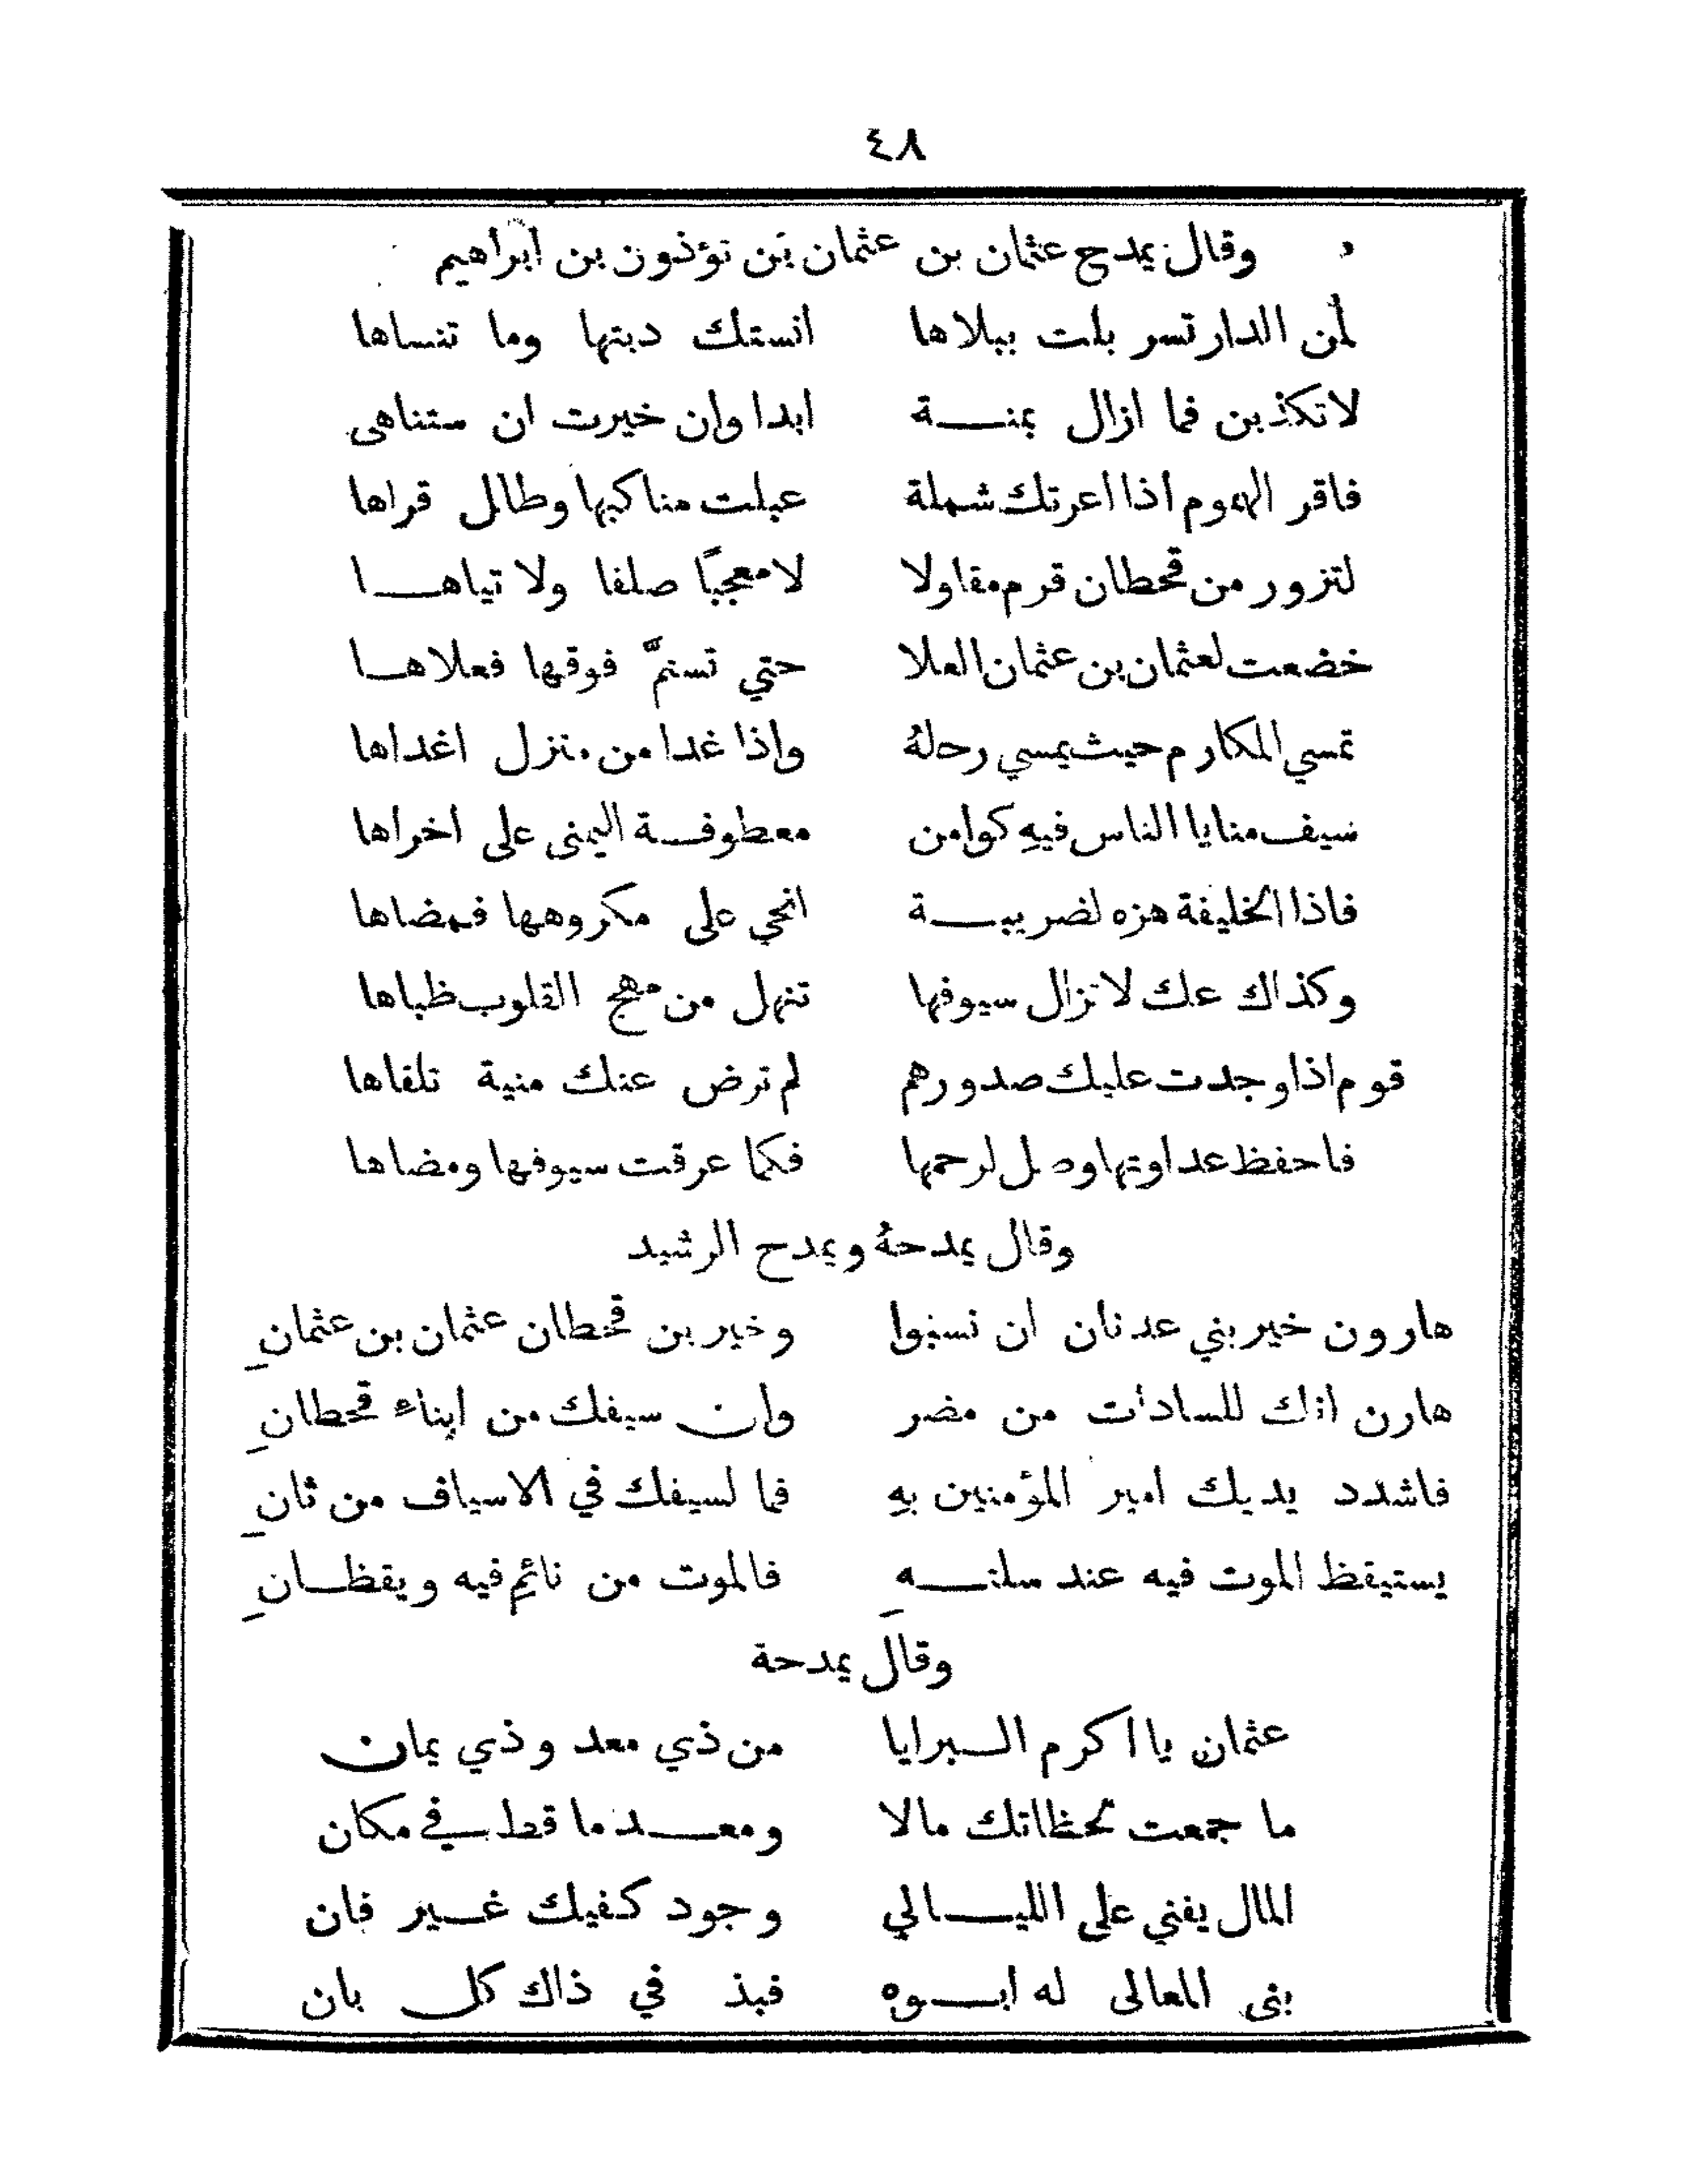 ٤٨
وقال يمدح عثمان بن عثمان بن نؤذون بن ابراهيم
لمن الدار تسر بلت ببلاها انستك دبتها وما تنساها
لا تكذبن فما ازال بمنـــة ابدا وان خيرت ان ستناهى
فاقر الهموم اذا اعرتك شملة عبلت مناكبها وطال قراها
لتزور من قحطان قرم مقاولا لا معجبًا صلفا ولا تياهـــا
خضعت لعثمان بن عثمان العلا حتي تسنمَّ فوقها فعلاهـــا
تمسي المكارم حيث يمسي رحلهُ واذا غدا من منزل اغداها
سيف منايا الناس فيهِ كوامن معطوفـــة اليمنى على اخراها
فاذا الخليفة هزه لضريبـــة انحي على مكروهها فمضاها
وكذاك عك لا تزال سيوفها تنهل من مهج القلوب ظباها
قوم اذا وجدت عليك صدورهم لم ترض عنك منية تلقاها
فاحفظ عداوتها وصل لرحمها فكما عرقت سيوفها ومضاها
وقال يمدحهُ ويمدح الرشيد
هارون خير بني عدنان ان نسبوا وخير بن قحطان عثمان بن عثمانِ
هارن انك للسادات من مضر وان سيفك من ابناء قحطانِ
فاشدد يديك امير المؤمنين بهِ فما لسيفك في الاسياف من ثانِ
يستيقظ الموت فيه عند سلتـــهِ فالموت من نائم فيه ويقظـــانِ
وقال يمدحة
عثمان يا اكرم الـــبرايا من ذي معد وذي يمان
ما جمعت لحظاتك مالا ومعـــد ما قط في مكان
المال يفني على الليـــالي وجود كفيك غـــير فان
بنى المعالى له ابـــوه فبذ في ذاك كل بان